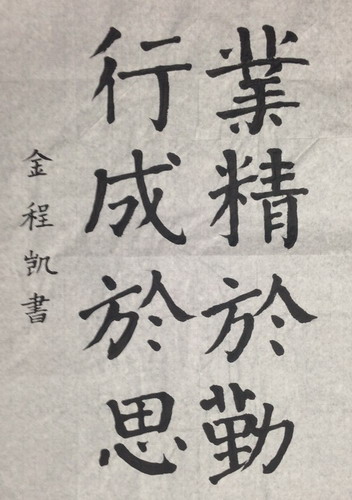 業精於勤
行成於思
金程凱書